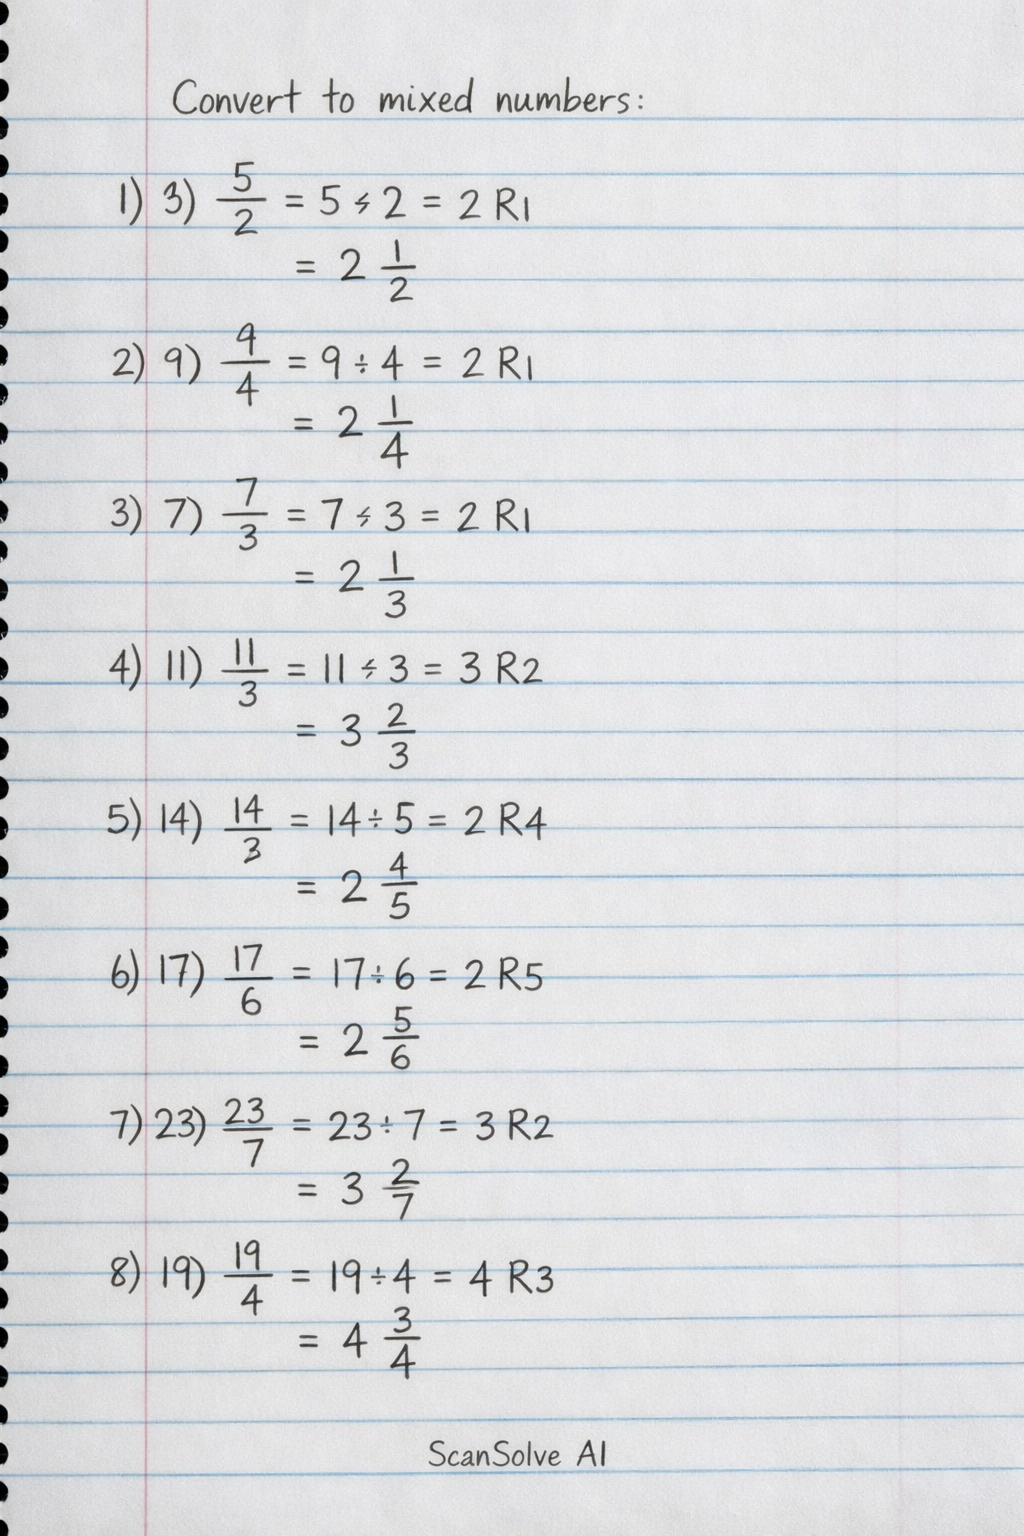 Convert to mixed numbers:
1) 3) 5/2 = 5 ÷ 2 = 2 R1
= 2 1/2
2) 9) 9/4 = 9 ÷ 4 = 2 R1
= 2 1/4
3) 7) 7/3 = 7 ÷ 3 = 2 R1
= 2 1/3
4) 11) 11/3 = 11 ÷ 3 = 3 R2
= 3 2/3
5) 14) 14/3 = 14 ÷ 5 = 2 R4
= 2 4/5
6) 17) 17/6 = 17 ÷ 6 = 2 R5
= 2 5/6
7) 23) 23/7 = 23 ÷ 7 = 3 R2
= 3 2/7
8) 19) 19/4 = 19 ÷ 4 = 4 R3
= 4 3/4
ScanSolve AI